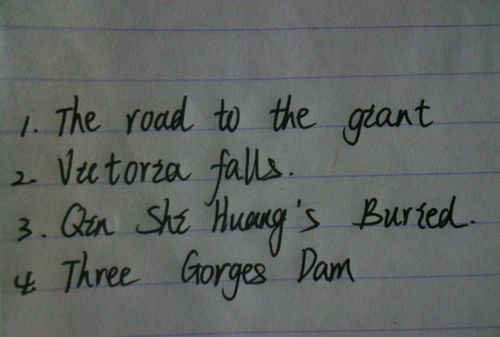 1. The road to the giant
2 Victoria falls.
3. Qin Shi Huang's Buried.
4 Three Gorges Dam